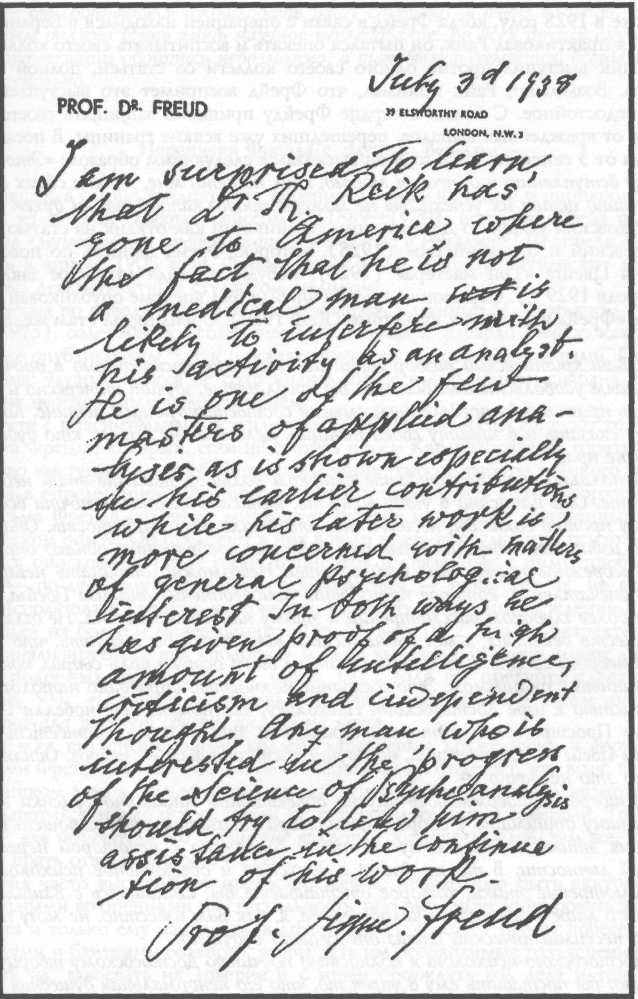 July 3d 1938
PROF. DR. FREUD
39 ELSWORTHY ROAD
LONDON, N.W.3
I am surprised to learn,
that dr Th. Reik has
gone to America where
the fact that he is not
a medical man is
likely to interfere with
his activity as an analyst.
He is one of the few
masters of applied ana-
lysis as is shown especially
in his earlier contributions
while his later work is
more concerned with matters
of general psychological
interest. In both ways he
has given proof of a high
amount of intelligence,
criticism and independent
thought. Any man who is
interested in the progress
of the science of Psychoanalysis
should try to lend him
assistance in the continua
tion of his work
Prof. Sigm. Freud